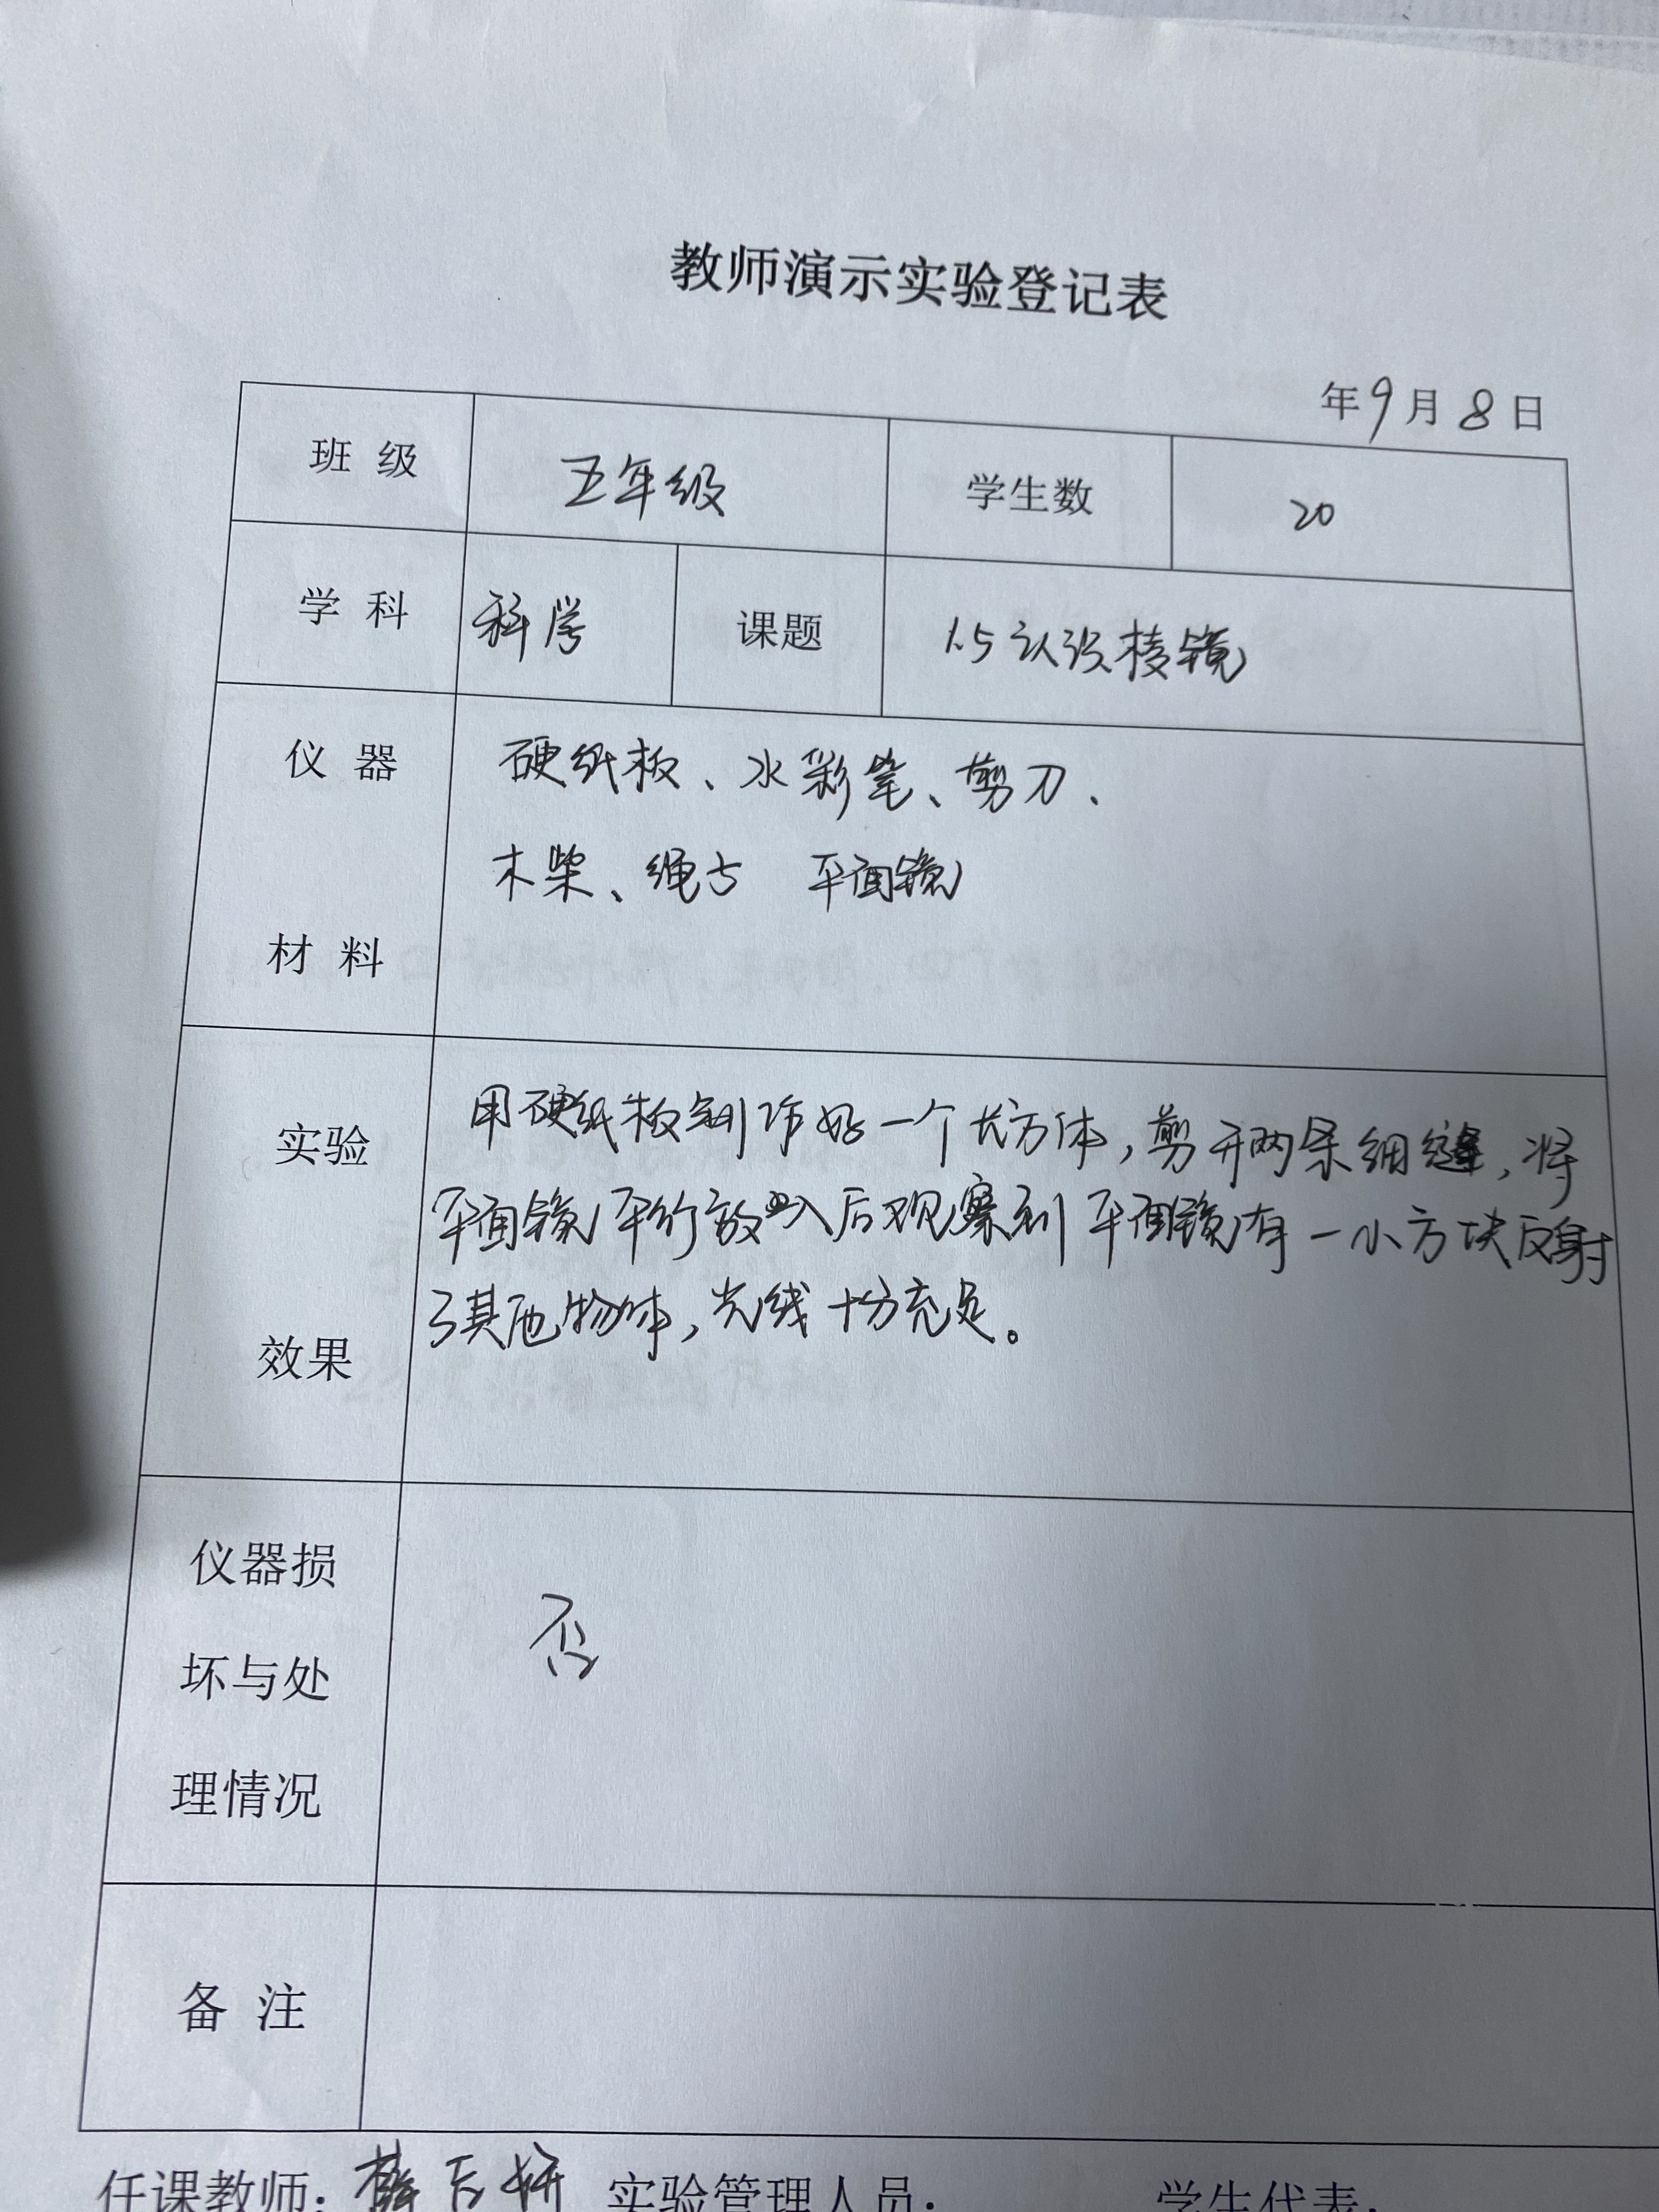 教师演示实验登记表
年9月8日
班级 五年级 学生数 20
学科 科学 课题 1.5认识棱镜
仪器 硬纸板、水彩笔、剪刀、
木柴、绳子 平面镜
材料
用硬纸板制作好一个长方体,剪开两条细缝,将
实验
平面镜平行放入后观察到平面镜有一小方块反射
了其他物体,光线十分充足。
效果
仪器损
否
坏与处
理情况
备注
任课教师: 实验管理人员: 学生代表: